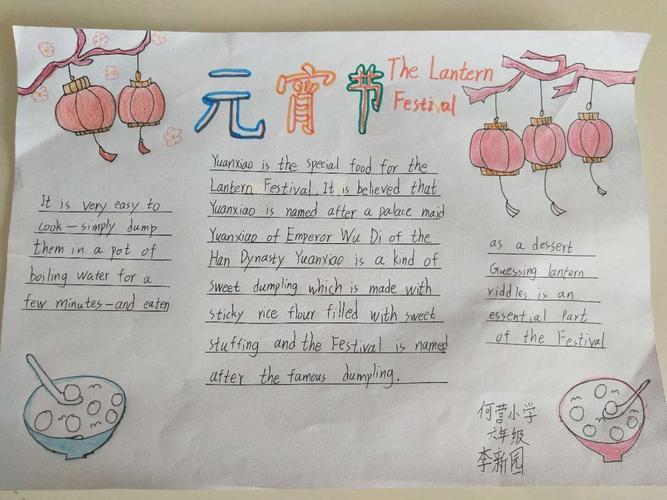 元宵节
The Lantern
Festival
It is very easy to
cook—simply dump
them in a pot of
boiling water for a
few minutes—and eaten
Yuanxiao is the special food for the
Lantern Festival. It is believed that
Yuanxiao is named after a palace maid
Yuanxiao of Emperor Wu Di of the
Han Dynasty Yuanxiao is a kind of
sweet dumpling which is made with
sticky rice flour filled with sweet
stuffing and the Festival is named
after the famous dumpling.
as a dessert
Guessing lantern
riddles is an
essential Part
of the Festival
何营小学
六年级
李新园